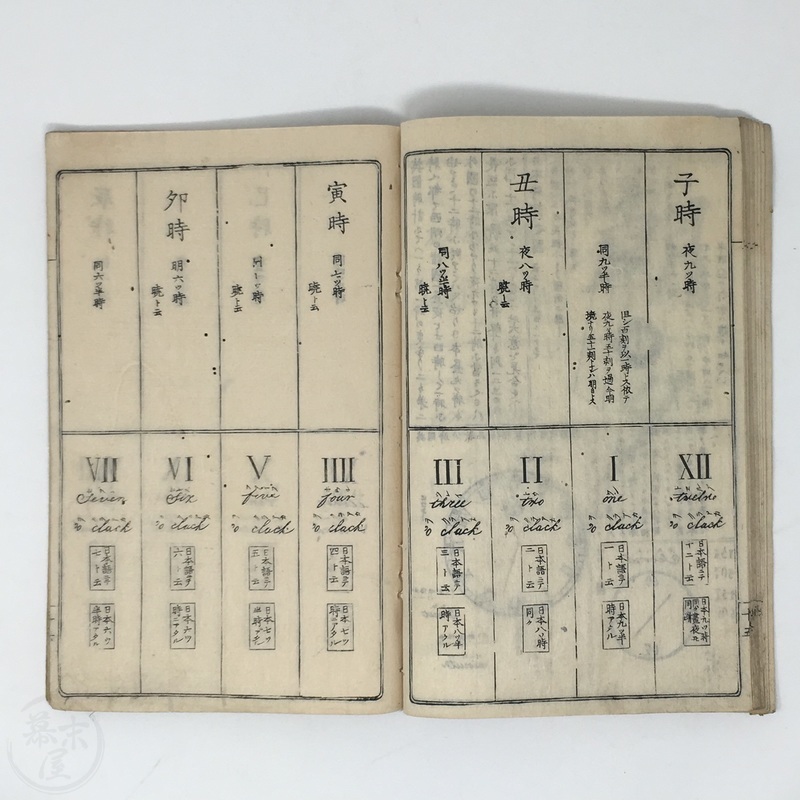 子時
夜九ツ時
同九ツ半時
丑時
夜八ツ時
暁ト云
同八ツ半時
暁ト云
寅時
同七ツ時
暁ト云
暁ト云
卯時
明六ツ時
暁ト云
同六ツ半時
XII
twelve
o clack
日本語ニテ
十二ト云
日本九ツ時
I
one
o clack
日本語ニテ
一ト云
日本九ツ半
時ニアタル
II
two
o clack
日本語ニテ
二ト云
日本八ツ時
同ク
III
three
o clack
日本語ニテ
三ト云
日本八ツ半
時ニアタル
IIII
four
o clack
日本語ニテ
四ト云
日本七ツ
時ニアタル
V
five
o clack
日本語ニテ
五ト云
日本七ツ
VI
six
o clack
日本語ニテ
六ト云
日本六ツ
時ニアタル
VII
seven
o clack
日本語ニテ
七ト云
日本六ツ
半時ニアタル
幕末屋